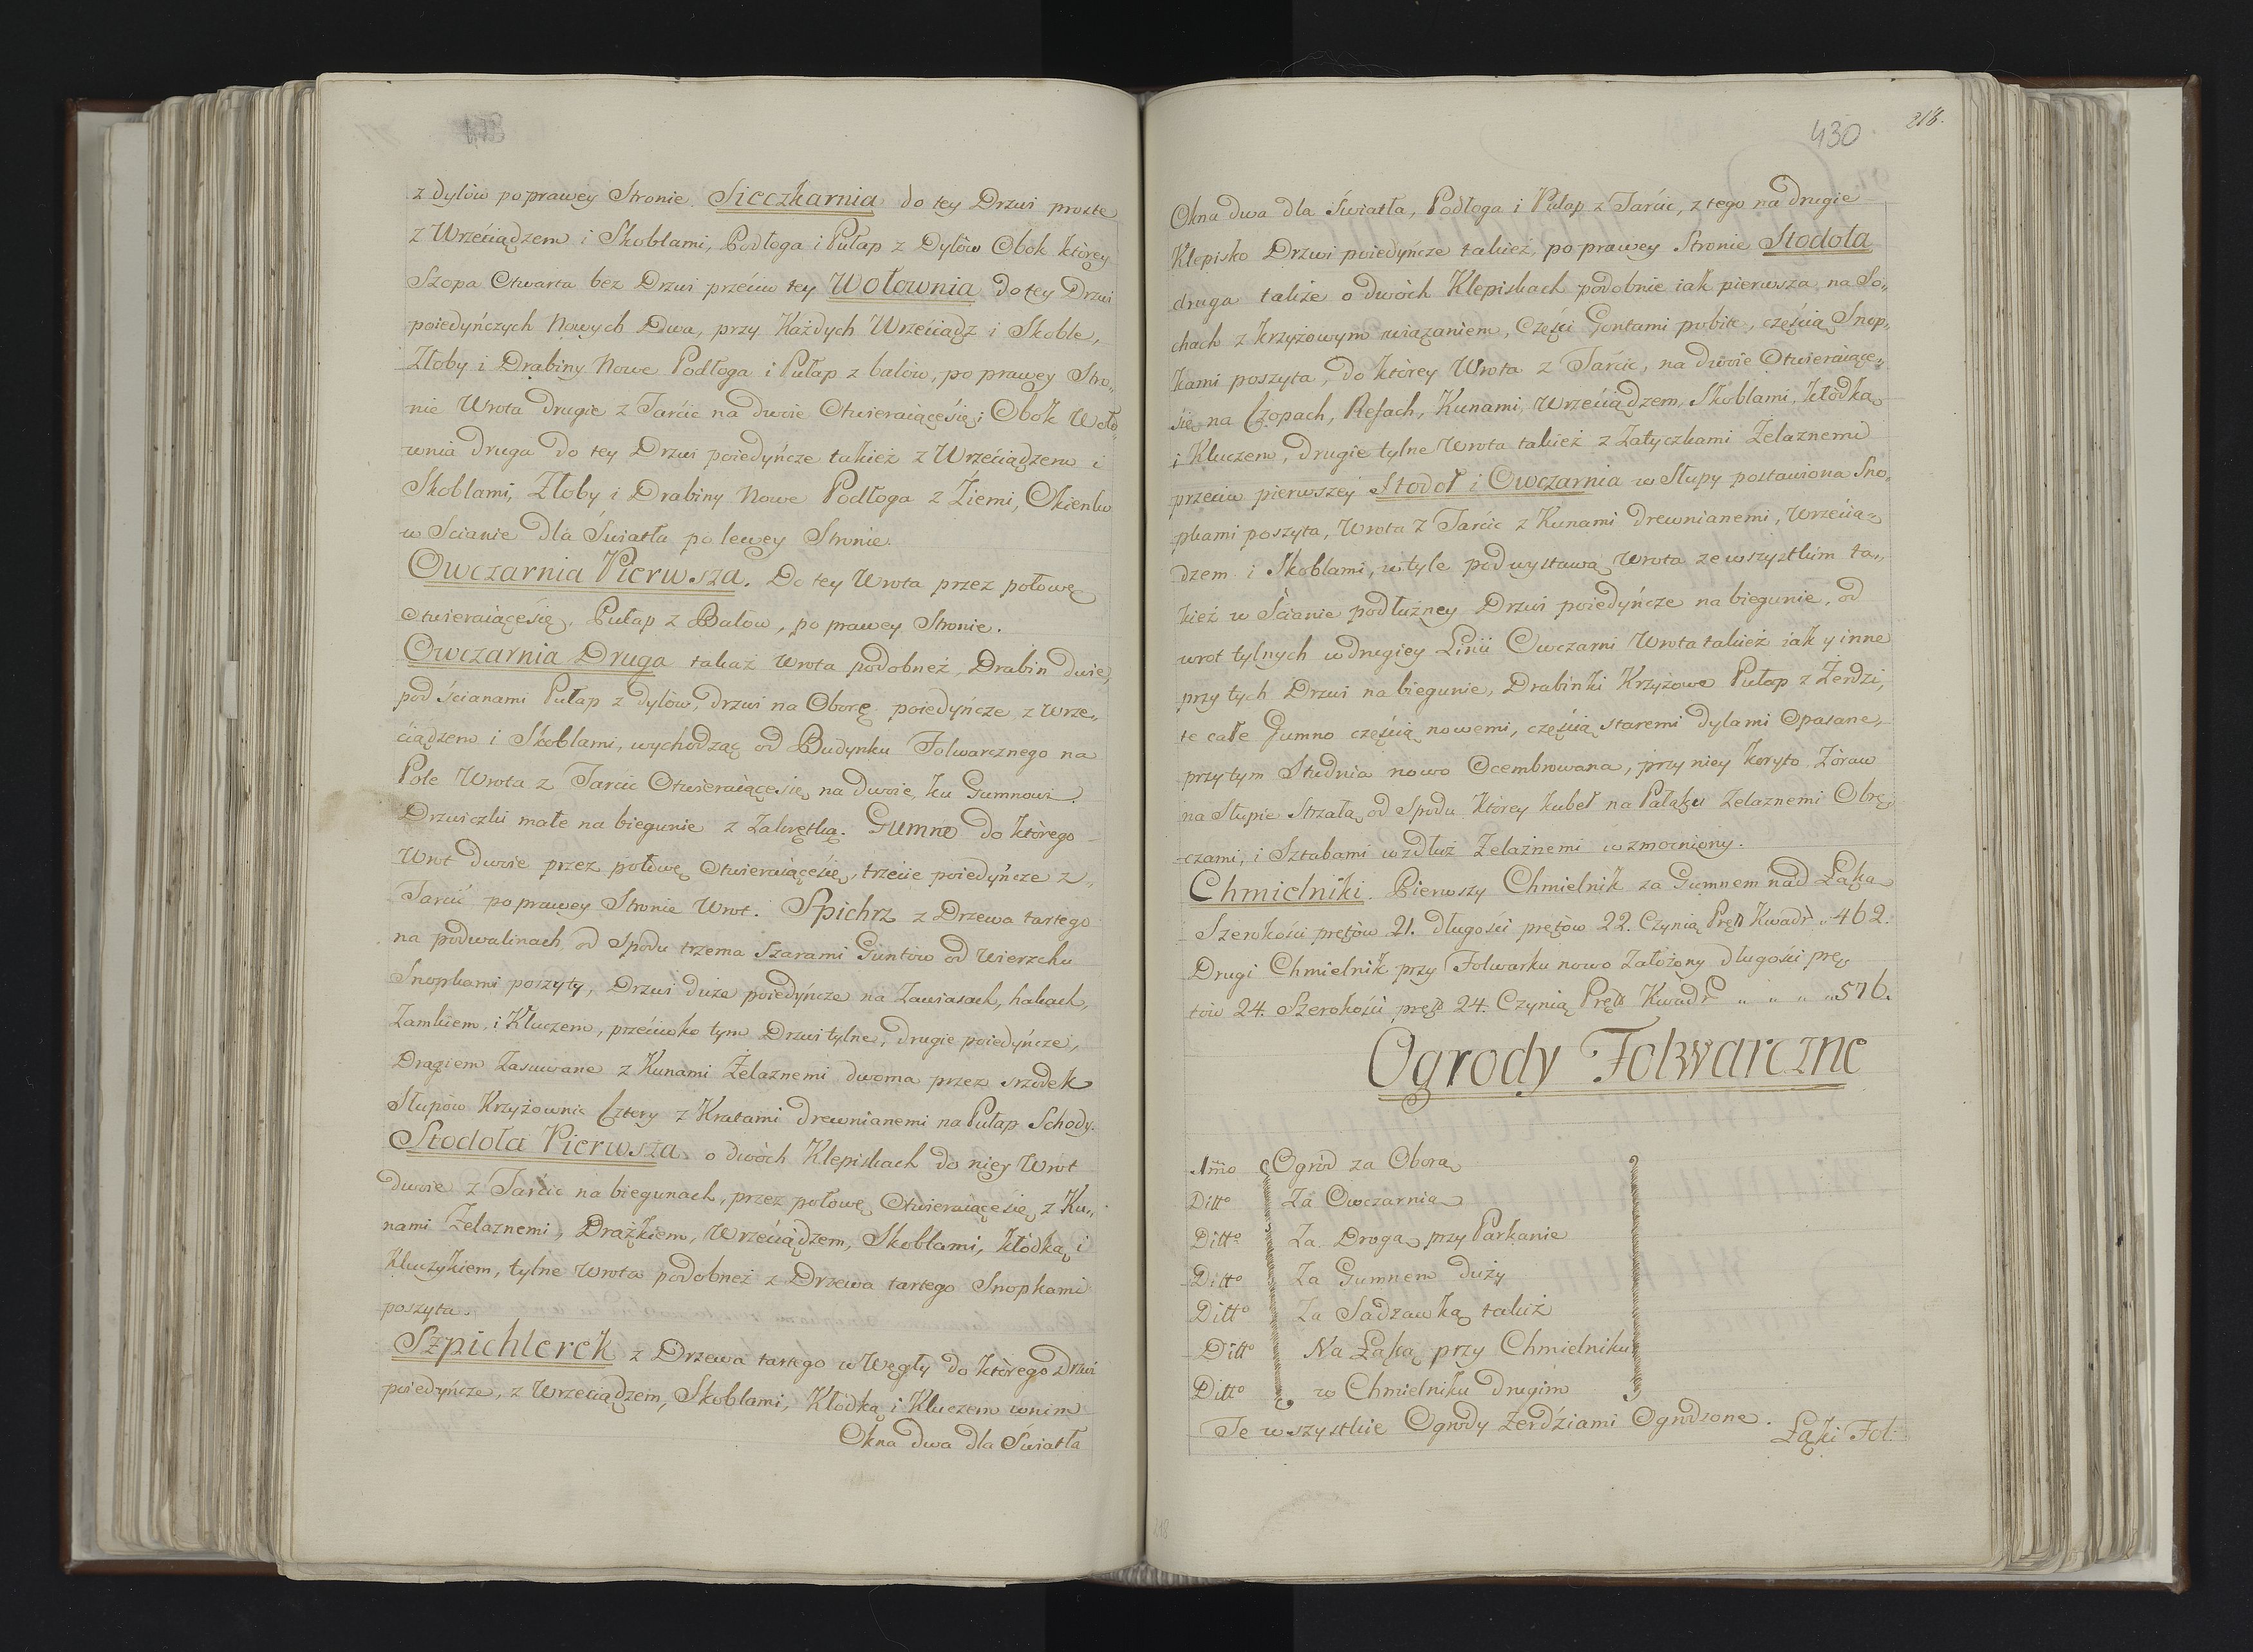 z dylów po prawey Stronie. Sieczkarnia do tey Drzwi proste
z Wrzeciądzem i Skoblami, Podłoga i Pułap z Dylów Obok którey
Szopa Otwarta bez Drzwi przeciw tey Wołownia do tey Drzwi
poiedyńczych Nowych Dwa, przy Każdych Wrzeciądz i Skoble,
Żłoby i Drabiny Nowe Podłoga i Pułap z balów, po prawey Stro„
nie Wrota drugie z Tarcic na dwoie Otwieraiącęsię, Obok Woło„
wnia druga do tey Drzwi poiedyńcze takież z Wrzeciądzem i
Skoblami, Żłoby i Drabiny Nowe Podłoga z Ziemi, Okienko
w Scianie dla Swiatła po lewey Stronie.
Owczarnia Pierwsza. Do tey Wrota przez połowę
Otwieraiącęsię, Pułap z Balow, po prawey Stronie.
Owczarnia Druga takaż Wrota podobneż, Drabin dwie,
pod ścianami Pułap z dylów, drzwi na Oborę poiedyncze z Wrze„
ciądzem i Skoblami, wychodząc od Budynku Folwarcznego na
Pole Wrota z Tarcic Otwieraiącęsię na dwoie, ku Gumnowi
Drzwiczki małe na biegunie z Zakrętką. Gumno do którego
Wrot dwoie przez połowę Otwieraiącęsię, trzecie poiedyńcze z„
Tarcic po prawey Stronie Wrot. Spichrz z Drzewa tartego
na podwalinach od Spodu trzema Szarami Guntów od Wierzchu
Snopkami poszyty, Drzwi duże poiedyńcze na Zawiasach, hakach,
Zamkiem, i Kluczem, przeciwko tym Drzwi tylne, drugie poiedyńcze,
Drągiem Zasuwane z Kunami Żelaznemi dwoma przez srzodek
Słupów Krzyżownic Cztery z Kratami drewnianemi na Pułap Schody.
Stodoła Pierwsza o dwóch Klepiskach do niey Wrot
dwoie z Tarcic na biegunach, przez połowę Otwieraiącęsię z Ku„
nami Żelaznemi, Drążkiem, Wrzeciądzem, Skoblami, kłódką i
Kluczykiem, tylne Wrota podobneż z Drzewa tartego Snopkami
poszyta.
Szpichlerek z Drzewa tartego w Węgły do którego Drzwi
poiedyńcze, z Wrzeciądzem, Skoblami, Kłódką i Kluczem wnim
Okna dwa dla Swiatła
430
218.
Okna dwa dla Swiatła, Podłoga i Pułap z Tarcic, z tego na drugie
Klepisko Drzwi poiedyńcze takież, po prawey Stronie Stodoła
druga także o dwóch Klepiskach podobnie iak pierwsza, na So„
chach z krzyżowym wiązaniem, Części Gontami pobite, częścią Snop„
kami poszyta, do którey Wrota z Tarcic, na dwoie Otwieraiącę„
się na Czopach, Refach, Kunami, Wrzeciądzem, Skoblami, kłódką
i Kluczem, drugie tylne Wrota takież z Zatyczkami Żelaznemi
przeciw pierwszey Stodoł i Owczarnia w Słupy postawiona Sno„
pkami poszyta, Wrota z Tarcic z Kunami drewnianemi, Wrzecią„
dzem i Skoblami, w tyle pod wystawą Wrota ze wszystkim ta„
kież w Ścianie podłużney Drzwi poiedyńcze na biegunie, od
wrot tylnych w drugiey Linii Owczarni Wrota takież iak y inne
przy tych Drzwi na biegunie, Drabinki Krzyżowe Pułap z Żerdzi,
te całe Gumno częścią nowemi, częścią staremi dylami Opasane,
przy tym Studnia nowo Ocembrowana, przy niey koryto Żóraw
na Słupie Strzałą od Spodu którey kubeł na Pałąku Żelaznemi Obrę„
czami, i Sztabami wzdłuż Żelaznemi wzmocniony.
Chmielniki. Pierwszy Chmielnik za Gumnem nad Łąką
Szerokości prętów 21. długości prętów 22. Czynią Pręt Kwadr „ 462.
Drugi Chmielnik przy Folwarku nowo Założony długości prę„
tów 24. Szerokości pręt 24. Czynią Pręt Kwadr „ „ „ „ 576.
Ogrody Folwarczne
1mo Ogród za Oborą
Ditto Za Owczarnią
Ditto Za Drogą przy Parkanie
Ditto Za Gumnem duży
Ditto Za Sadzawką takiż
Ditto Na Łąką przy Chmielniku
Ditto w Chmielniku drugim
Te wszystkie Ogrody Żerdziami Ogrodzone.
Łąki Fol: